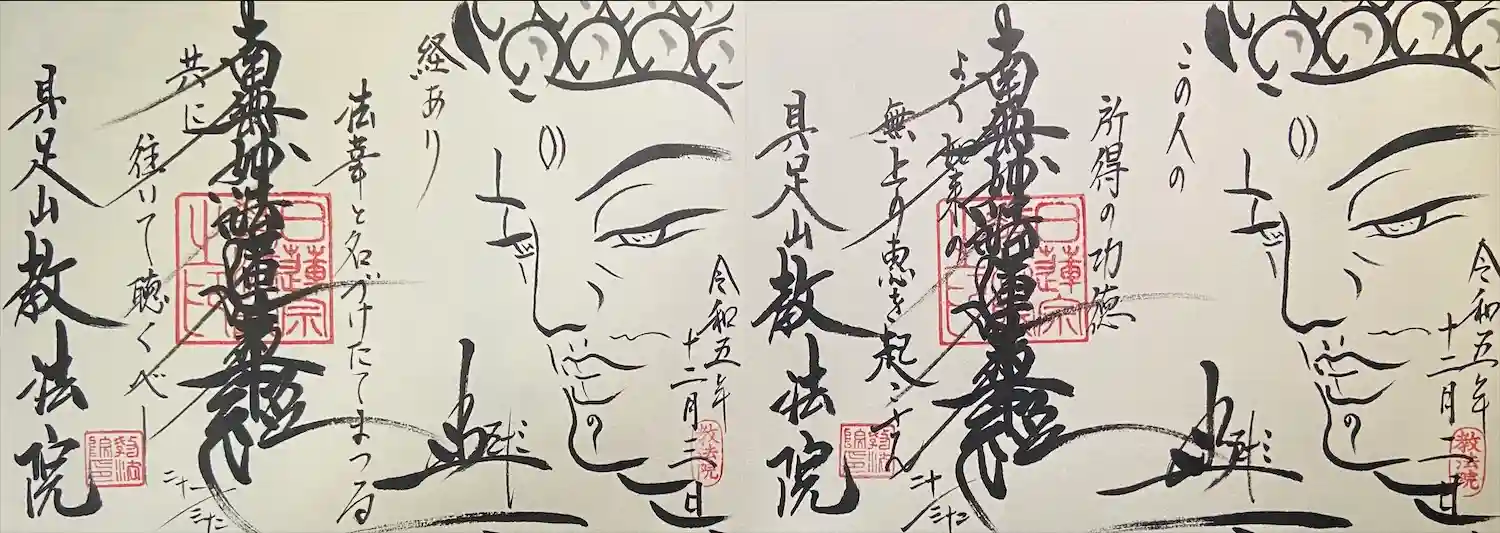 令和五年
十二月二日
教法院
この人の
所得の功徳
南無妙法蓮華経
日蓮宗
よく如来の
無上の恵を起こさん
二十
三十二
具足山教法院
教法院印
令和五年
十二月三日
教法院
経あり
法華と名づけたてまつる
南無妙法蓮華経
日蓮宗
之印
共に
往いて聴くべし
二十一
三十二
具足山教法院
教法院印